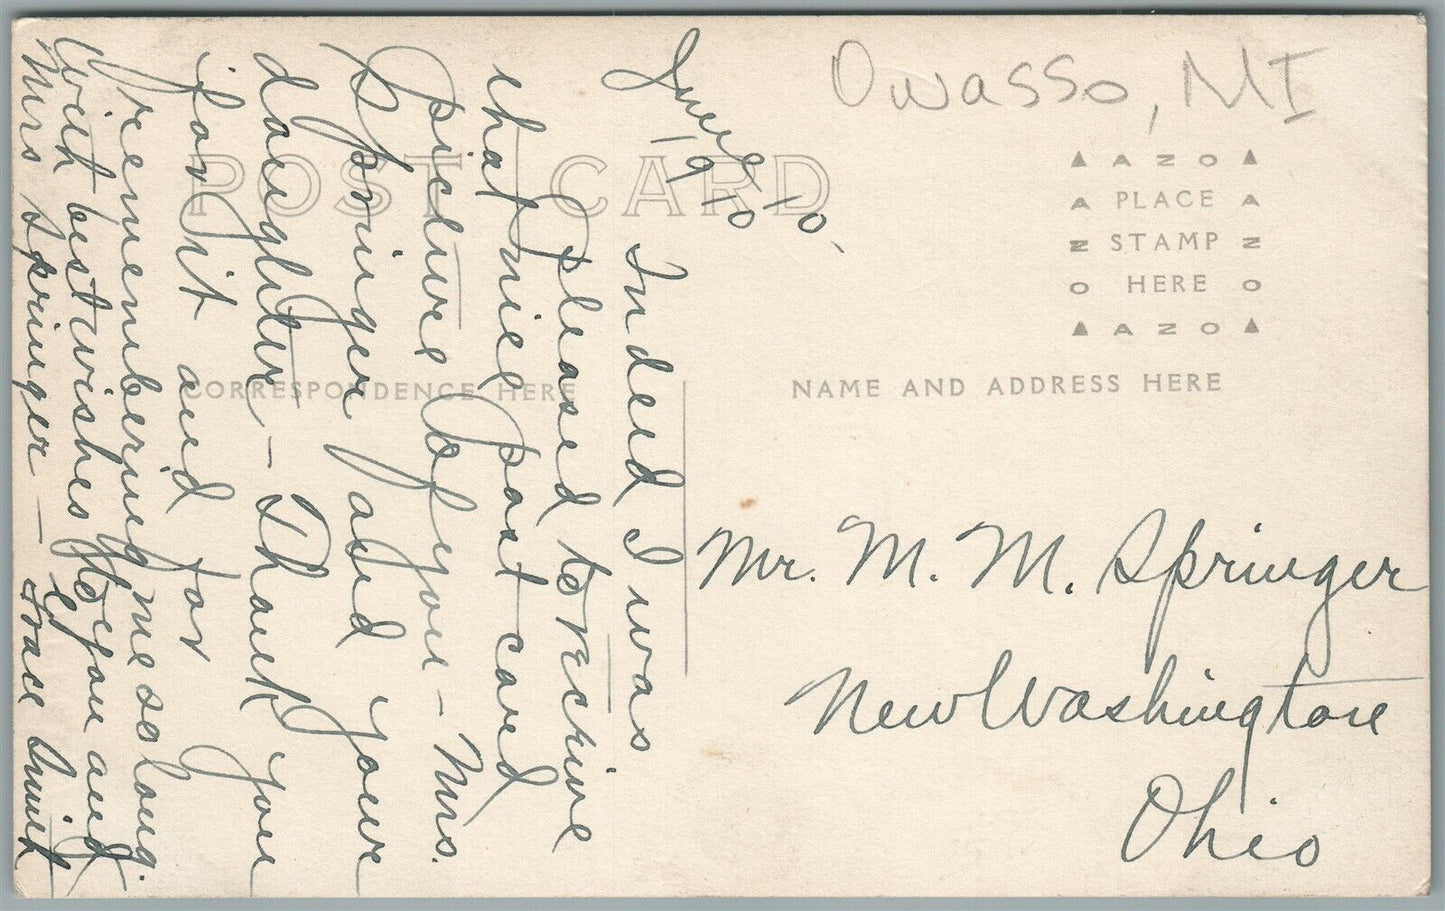 Owasso, MI
POST CARD
AZO
PLACE
STAMP
HERE
AZO
CORRESPONDENCE HERE
NAME AND ADDRESS HERE
June 10,
1910
Indeed I was
pleased to recieve
that nice post card
picture of you - Mrs.
Springer and your
daughter - Thank you
for it and for
remembering me so long.
With best wishes to you and
Mrs Springer - Grace Smith
Mr. M. M. Springer
New Washington
Ohio